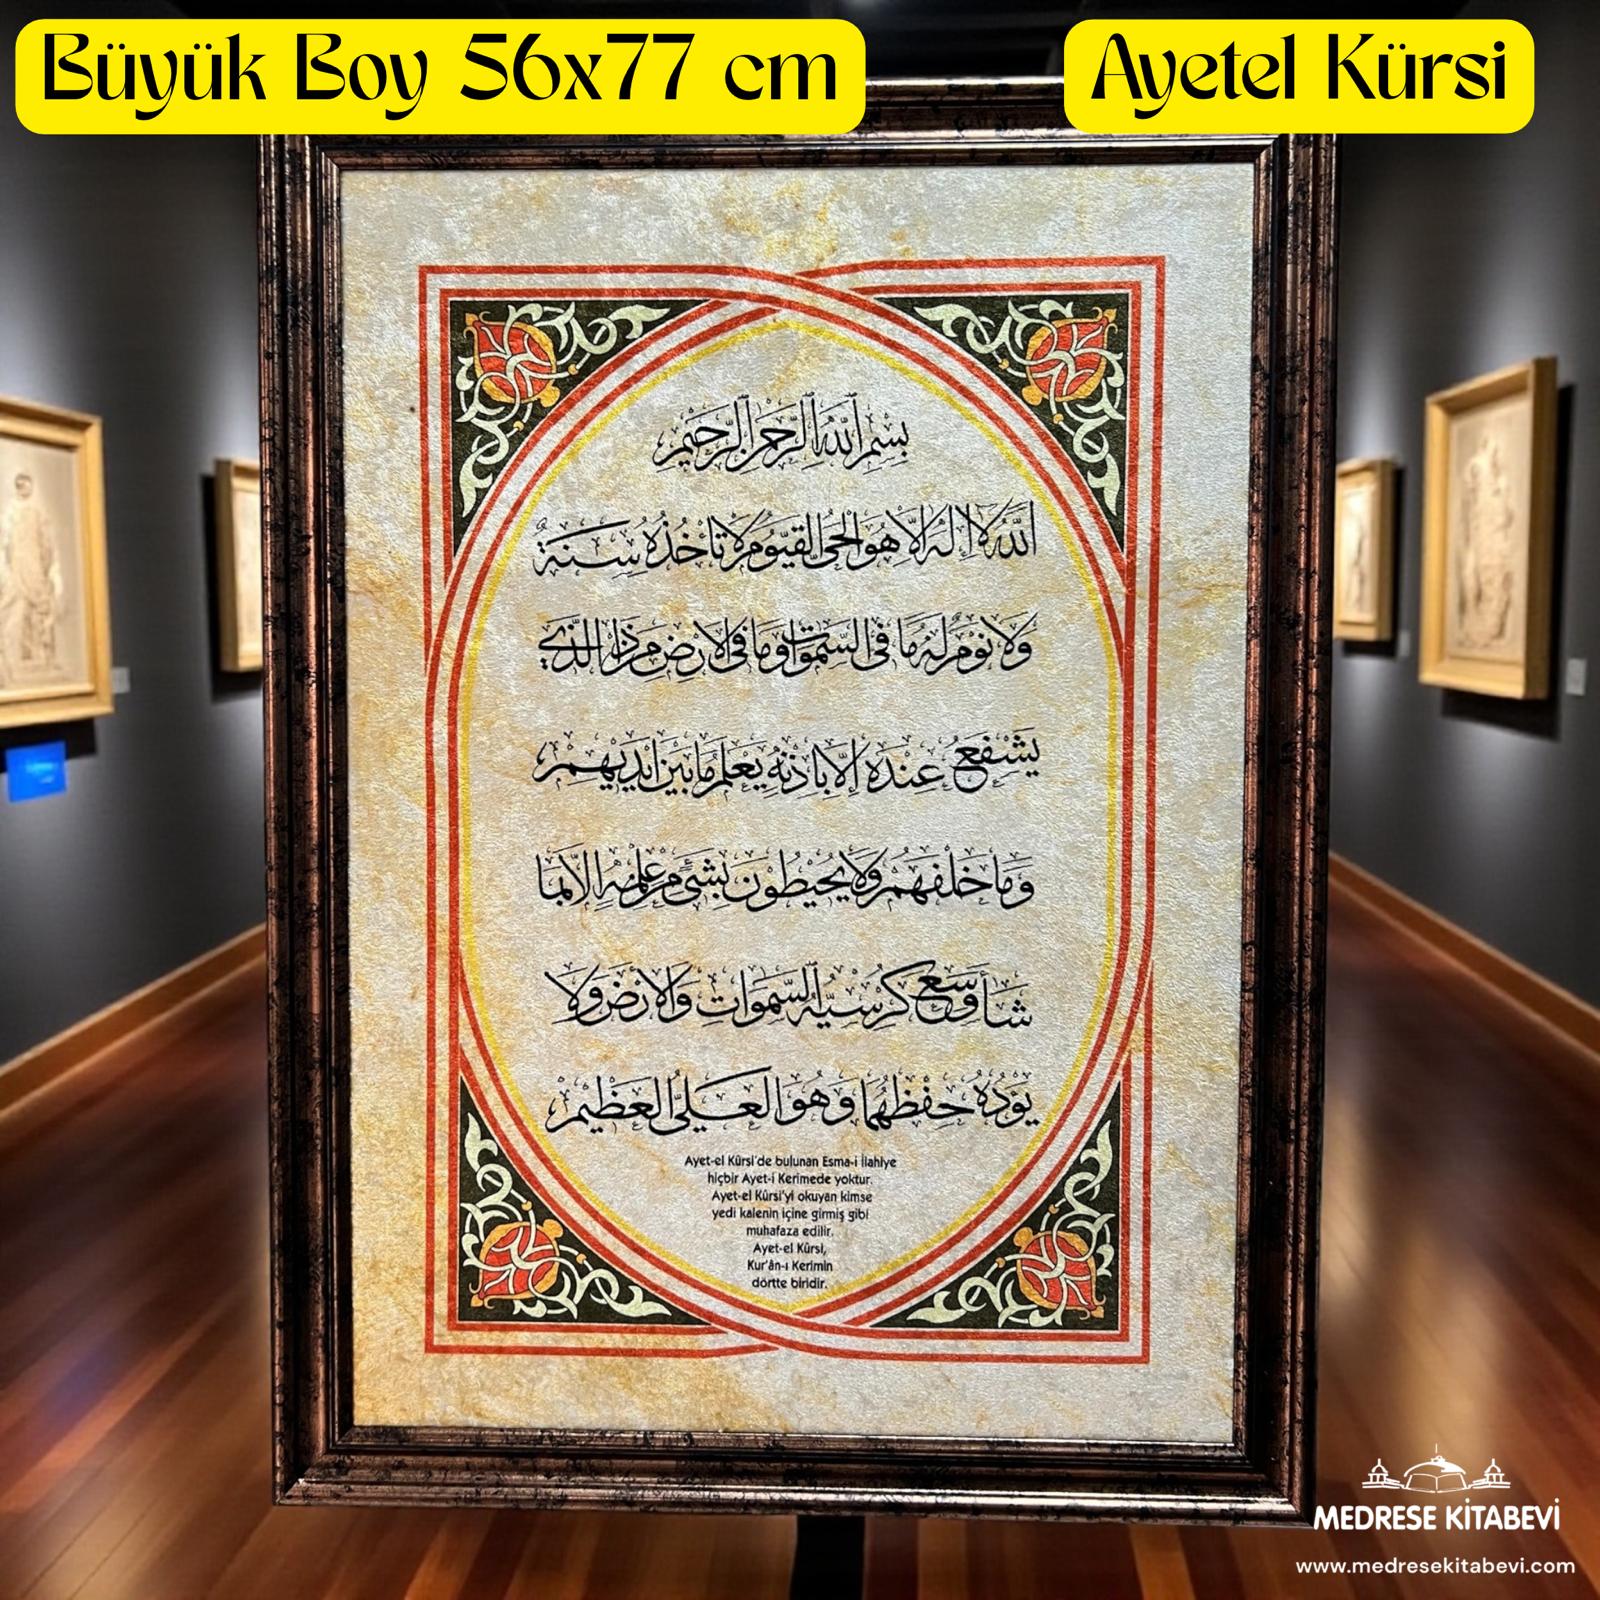 Büyük Boy 56x77 cm
Ayetel Kürsi
بِسْمِ اللّٰهِ الرَّحْمٰنِ الرَّحِيمِ
اَللّٰهُ لَا اِلٰهَ اِلَّا هُوَ الْحَىُّ الْقَيُّومُ لَا تَأْخُذُهُ سِنَةٌ
وَلَا نَوْمٌ لَهُ مَا فِى السَّمٰوَاتِ وَمَا فِى الْاَرْضِ مَنْ ذَا الَّذِى
يَشْفَعُ عِنْدَهُ اِلَّا بِاِذْنِهِ يَعْلَمُ مَا بَيْنَ اَيْدِيهِمْ
وَمَا خَلْفَهُمْ وَلَا يُحِيطُونَ بِشَىْءٍ مِنْ عِلْمِهِ اِلَّا بِمَا
شَاءَ وَسِعَ كُرْسِيُّهُ السَّمٰوَاتِ وَالْاَرْضَ وَلَا
يَؤُدُهُ حِفْظُهُمَا وَهُوَ الْعَلِىُّ الْعَظِيمُ
Ayet-el Kürsi'de bulunan Esma-i İlahiye
hiçbir Ayet-i Kerimede yoktur.
Ayet-el Kürsi'yi okuyan kimse
yedi kalenin içine girmiş gibi
muhafaza edilir.
Ayet-el Kürsi,
Kur'ân-ı Kerimin
dörtte biridir.
MEDRESE KİTABEVİ
www.medresekitabevi.com